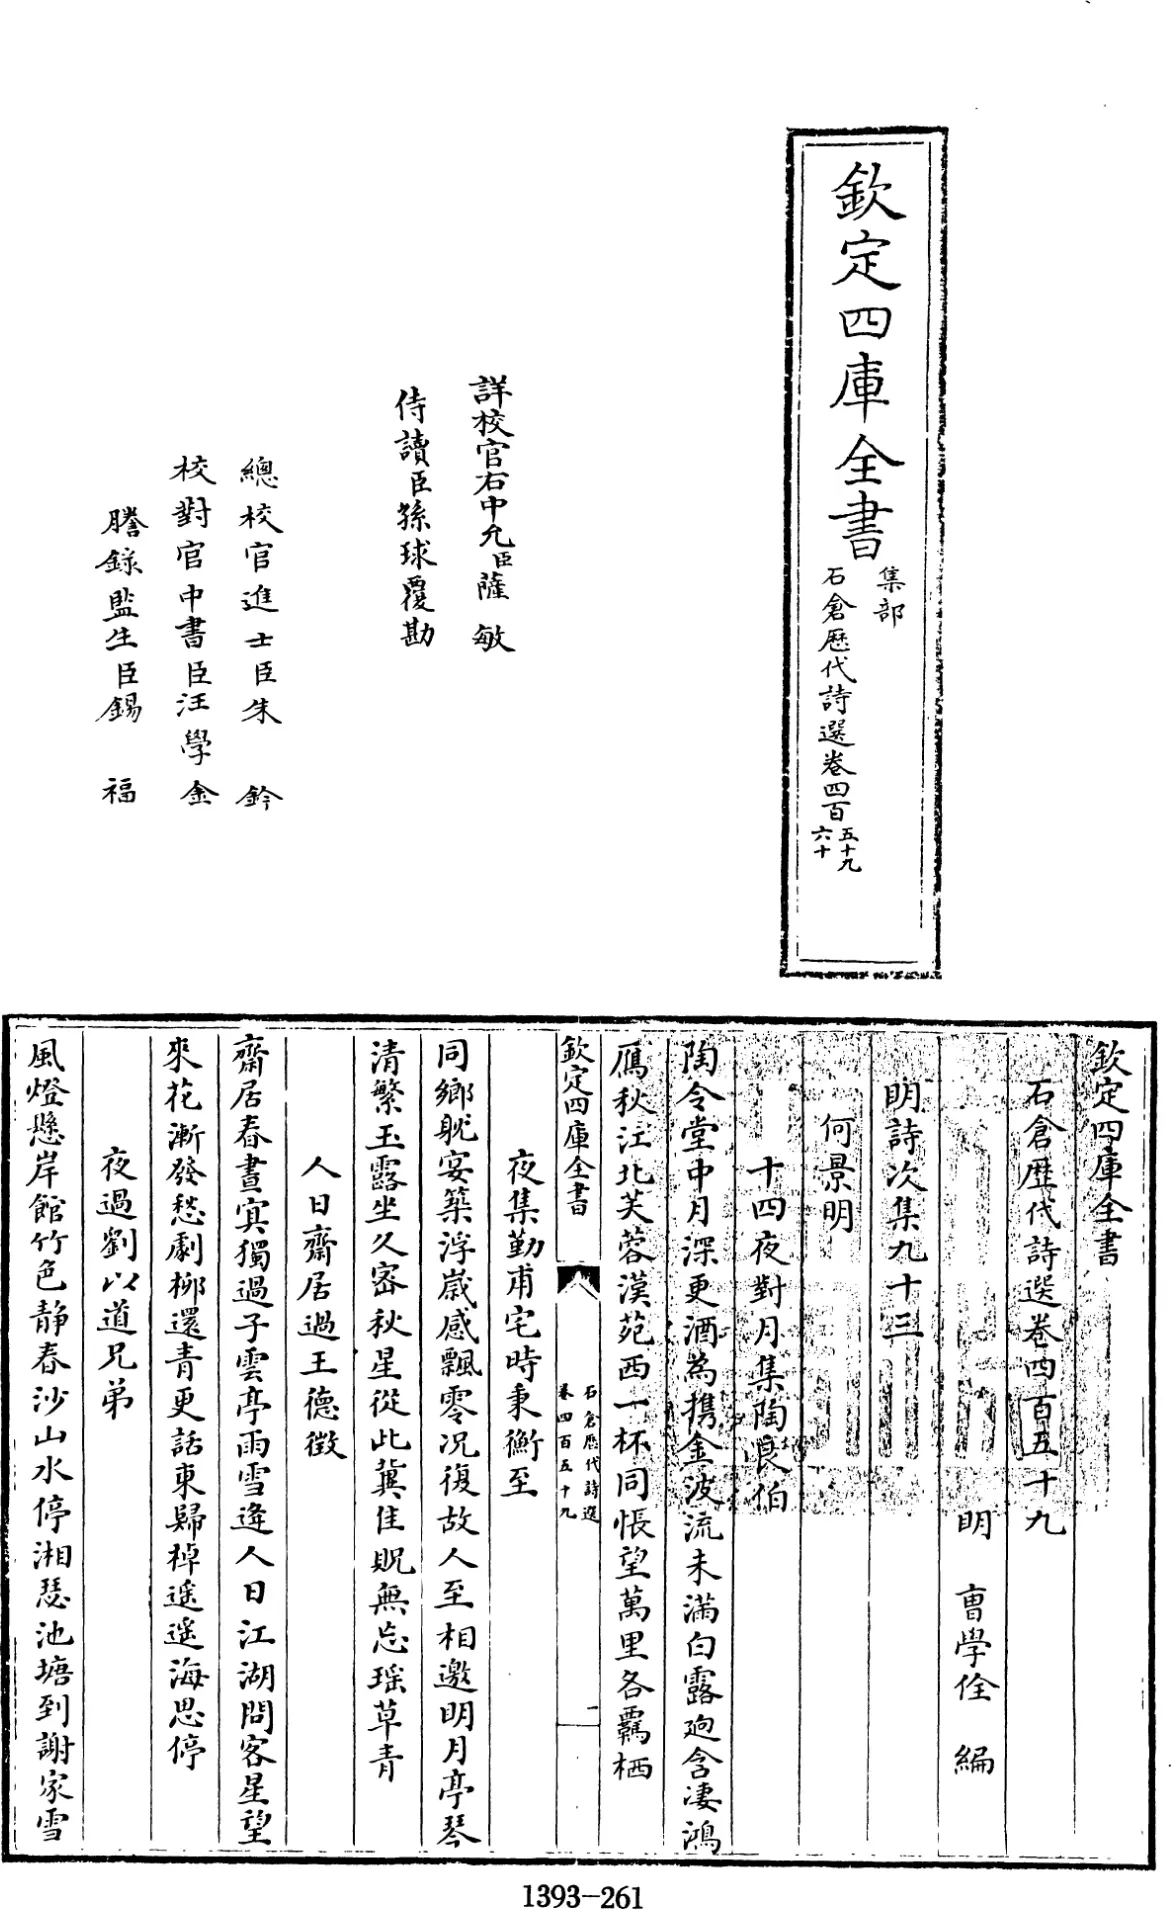 欽定四庫全書
集部
石倉歷代詩選卷四百
五十九
六十
詳校官右中允臣薩敏
侍讀臣孫球覆勘
總校官進士臣朱鈐
校對官中書臣汪學金
謄錄監生臣錫福
欽定四庫全書
石倉歷代詩選卷四百五十九
明 曹學佺 編
明詩次集九十三
何景明
十四夜對月集陶良伯
陶令堂中月深更酒為携金波流未滿白露迥含淒鴻
鴈秋江北芙蓉漢苑西一杯同悵望萬里各羇栖
欽定四庫全書
石倉歷代詩選
卷四百五十九
一
夜集勤甫宅時秉衡至
同鄉躭宴築浮嵗感飄零况復故人至相邀明月亭琴
清繁玉露坐久宻秋星從此冀佳貺無忘瑶草青
人日齋居過王德徵
齋居春晝寘獨過子雲亭雨雪逢人日江湖問客星望
來花漸發愁劇栁還青更話東歸棹遥遥海思停
夜過劉以道兄弟
風燈懸岸館竹色静春沙山水停湘瑟池塘到謝家雪
1393-261